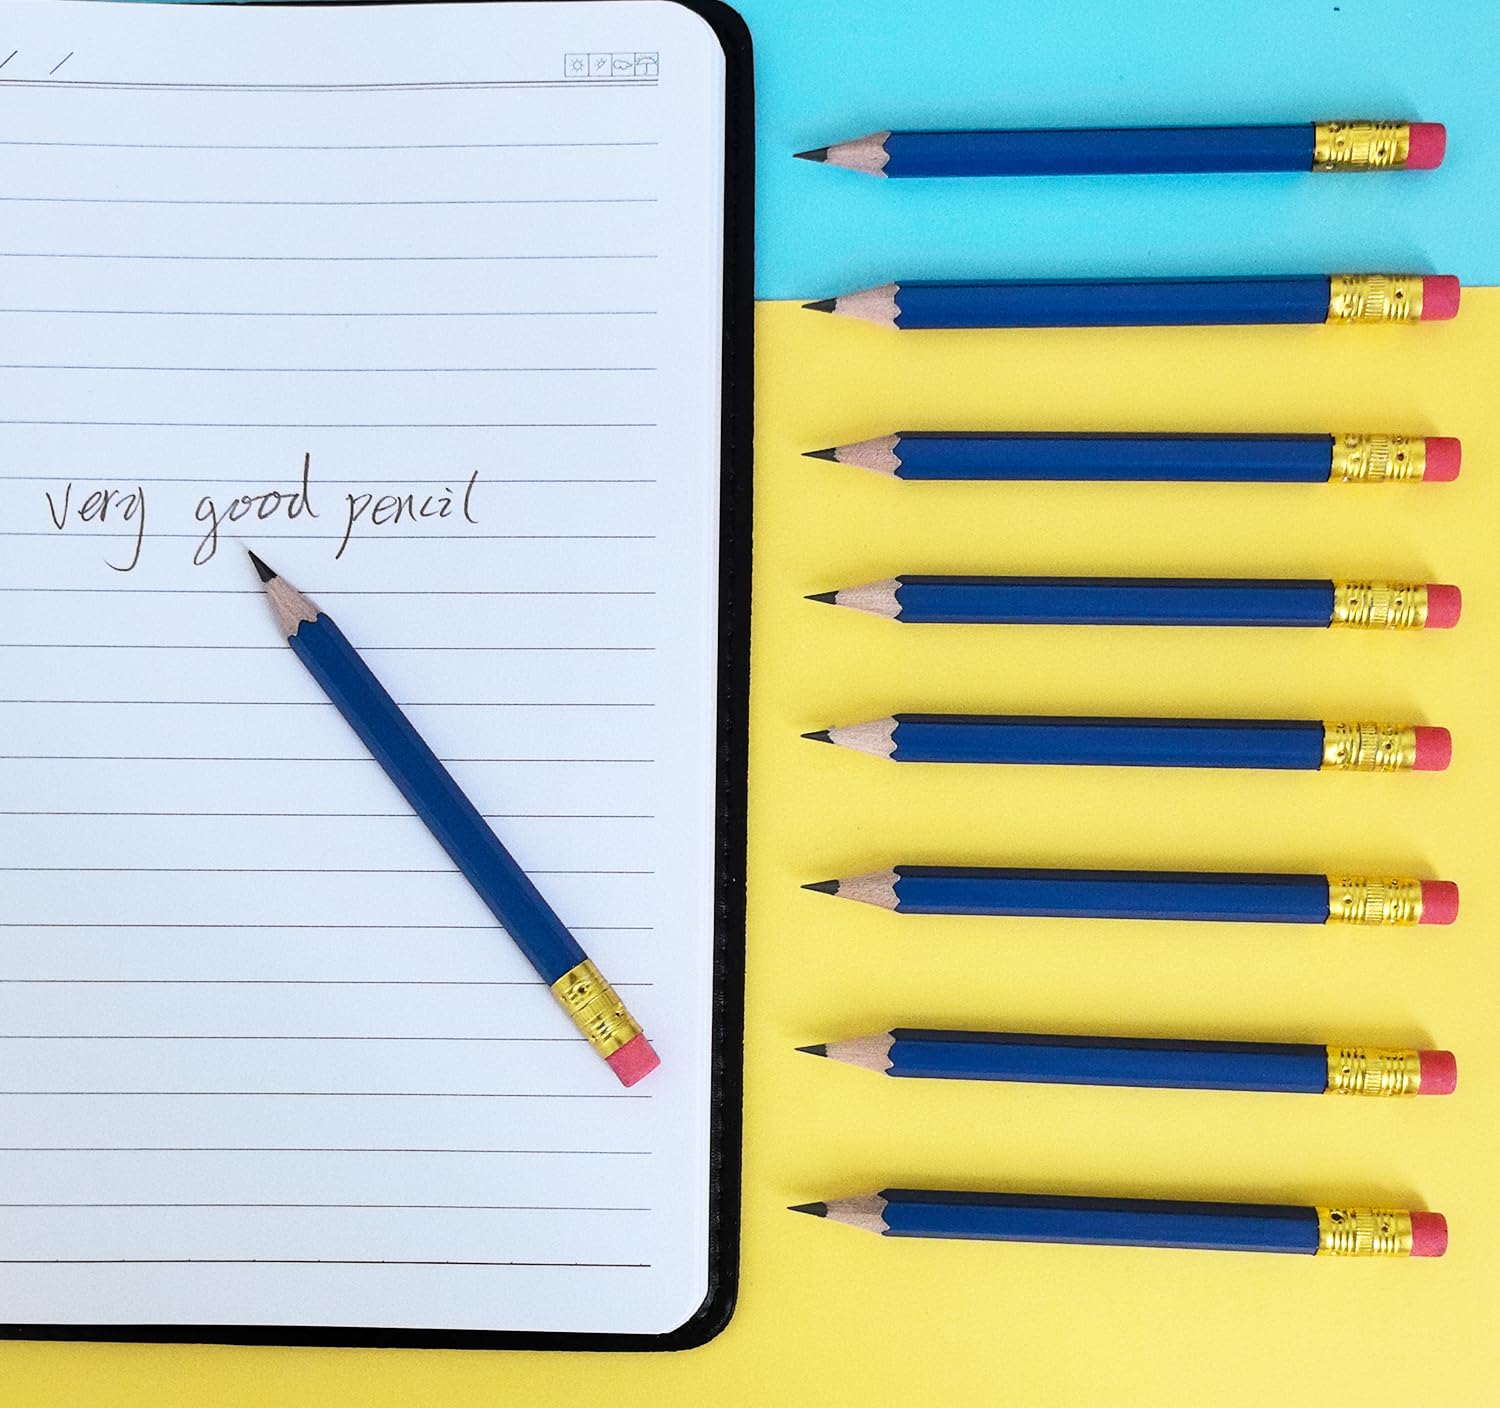 very good pencil